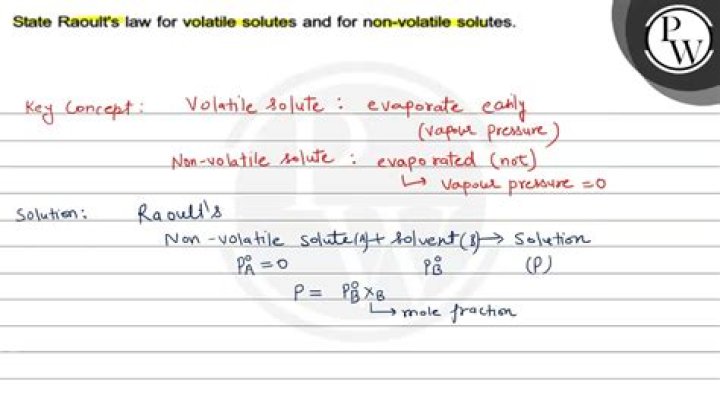 State Raoult's law for volatile solutes and for non-volatile solutes.
P
W
Key Concept: Volatile solute : evaporate easily
(vapour pressure)
Non-volatile solute : evaporated (not)
↳ vapour pressure = 0
Solution: Raoult's
Non-volatile solute(A) + solvent(B) → Solution
P°A = 0 P°B (P)
P = P°B XB
↳ mole fraction